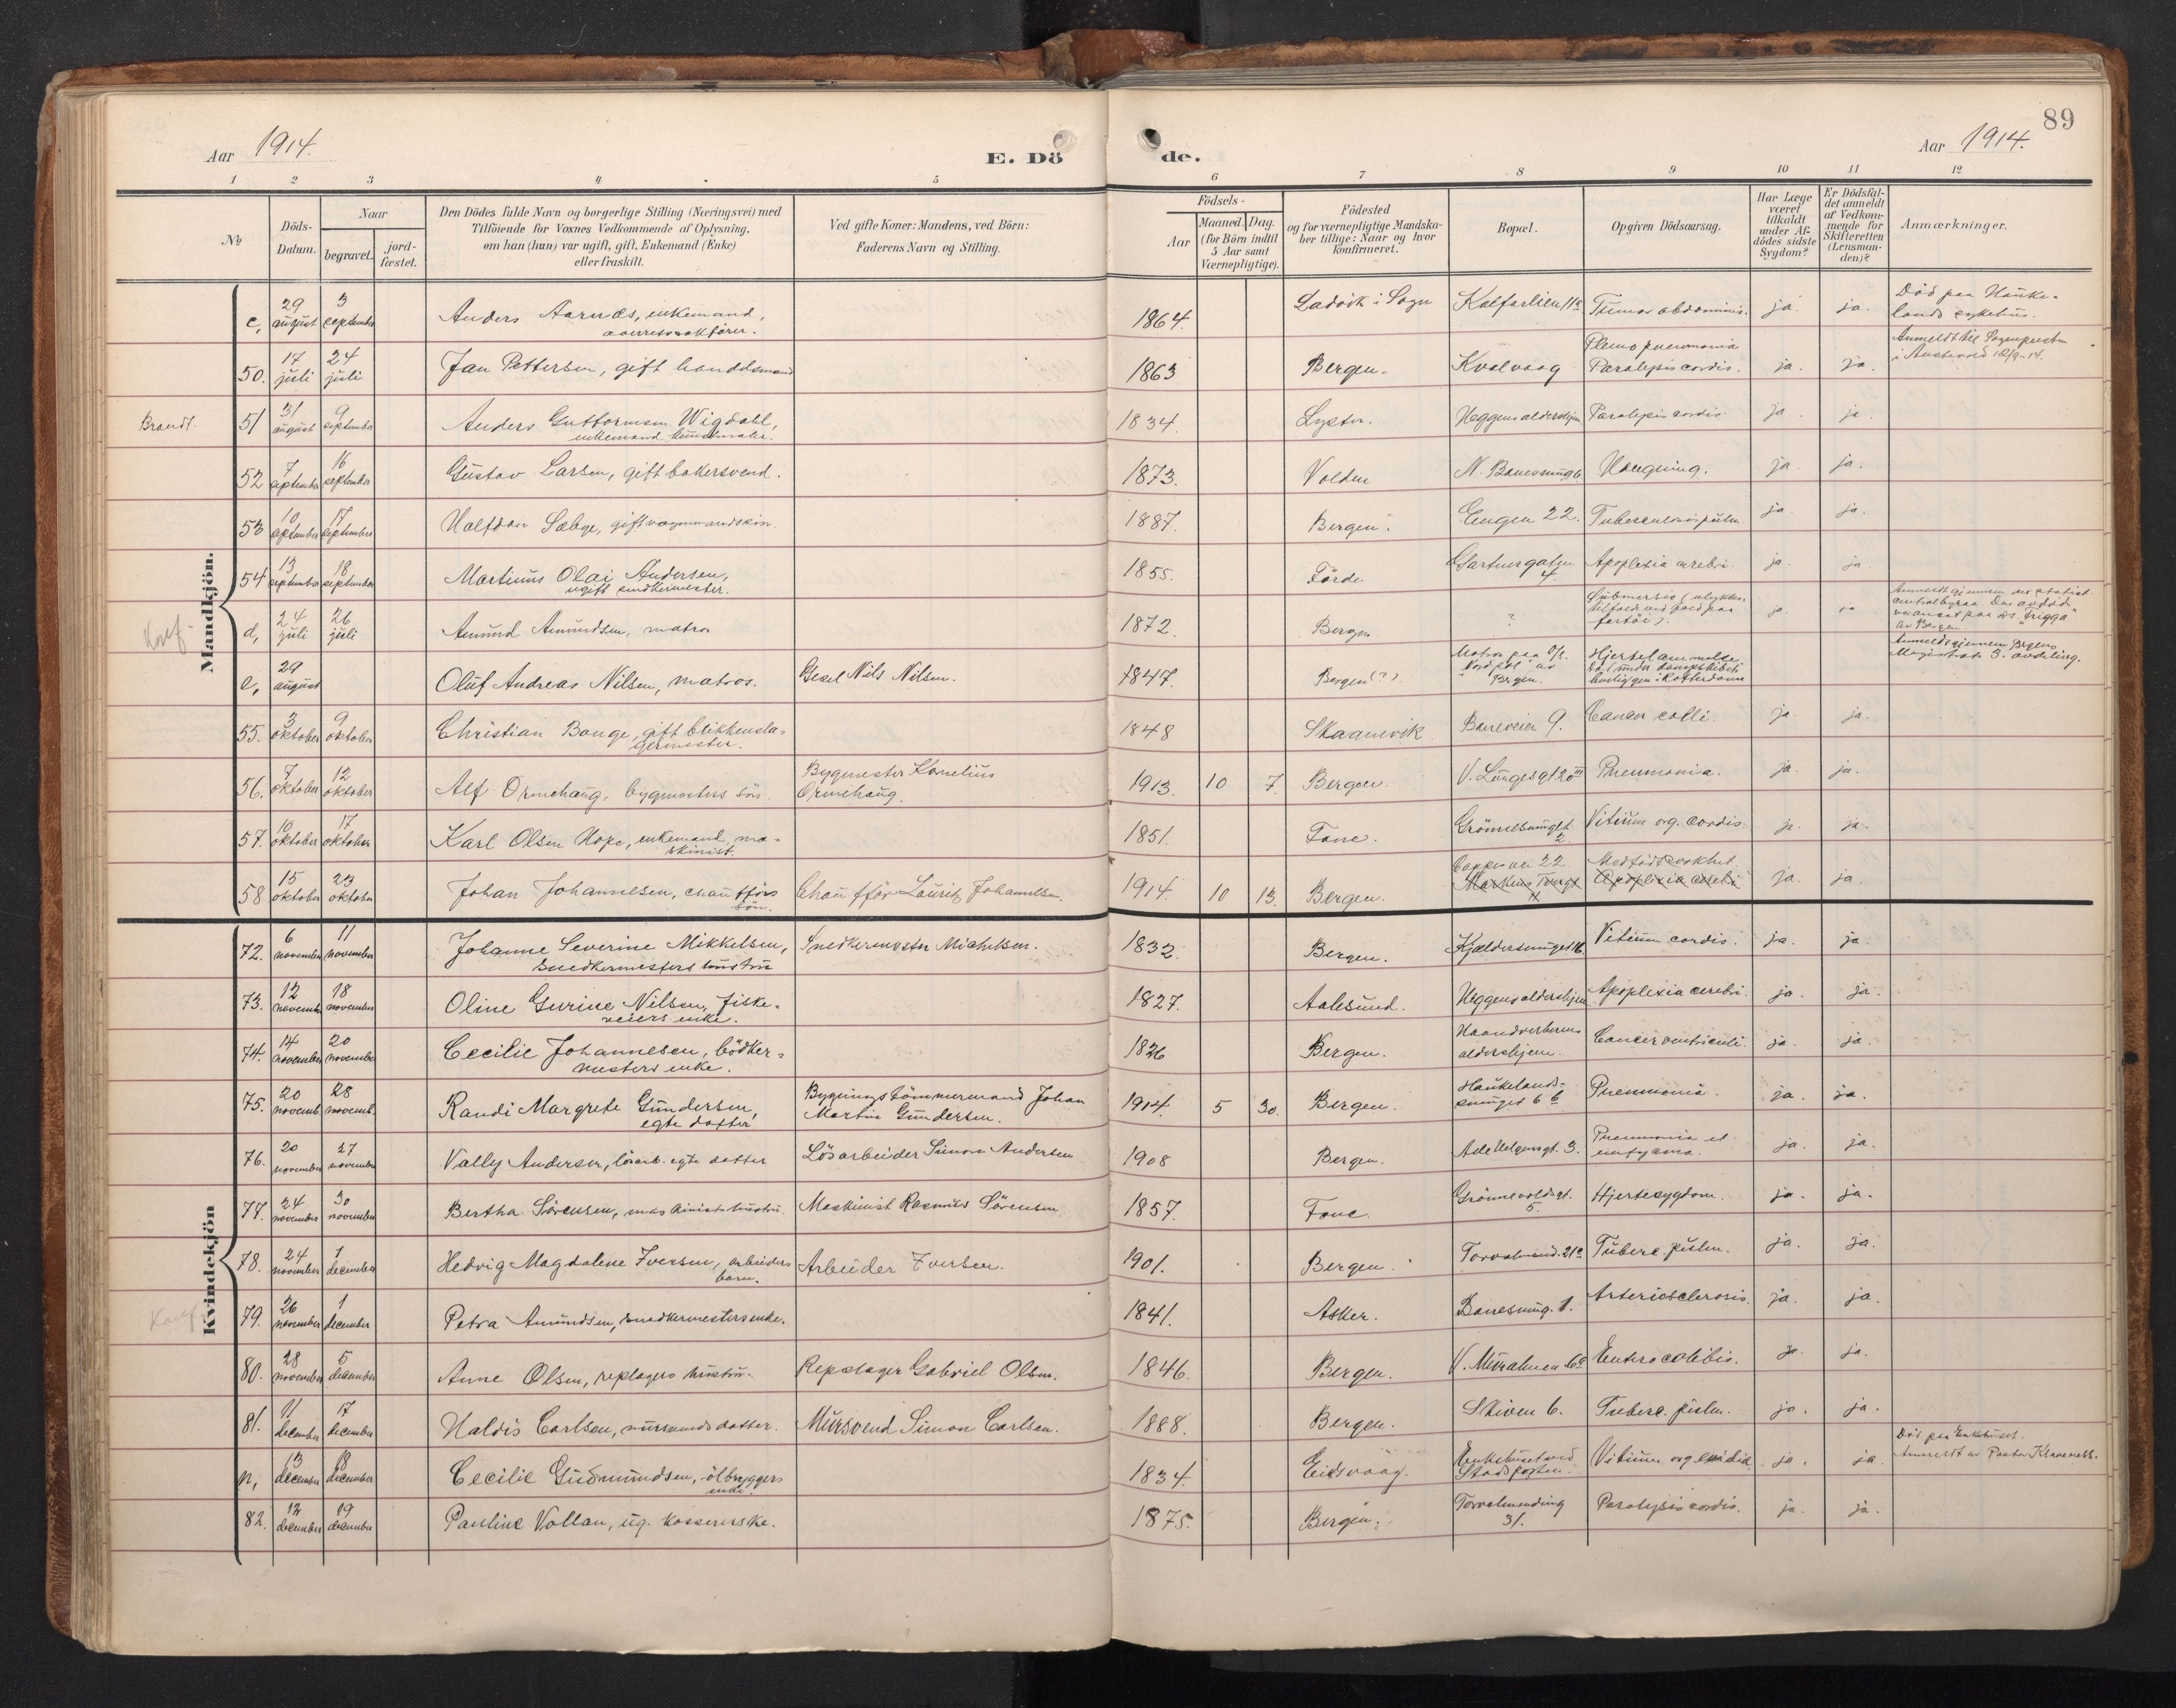 89
Aar 1914.
E. Dö
de.
Aar 1914.
1 2 3 4 5 6 7 8 9 10 11 12
No
Döds-
Datum.
Naar
begravet.
jord-
fæstet.
Den Dödes fulde Navn og borgerlige Stilling (Næringsvei) med
Tilföiende for Voxnes Vedkommende af Oplysning,
om han (hun) var ugift, gift, Enkemand (Enke)
eller fraskilt.
Ved gifte Koner: Mandens, ved Börn:
Faderens Navn og Stilling.
Födsels-
Aar
Maaned. Dag.
(for Börn indtil
5 Aar samt
Værnepligtige).
Födested
og for værnepligtige Mandska-
ber tillige: Naar og hvor
konfirmeret.
Bopæl.
Opgiven Dödsaarsag.
Har Læge
været
tilkaldt
under Af-
dödes sidste
Sygdom?
Er Dödsfal-
det anmeldt
af Vedkom-
mende for
Skifteretten
(Lensman-
den)?
Anmærkninger.
Mandkjön.
c, 29 august 3 september Anders Aarnæs, enkemand, 1864. Ladvik i Sogn Kalfarlien 11a Tumor abdominis. ja. ja. Død paa Hauke-
overretssakfører.
lands sykehus.
50. 17 juli 24 juli Jan Pettersen, gift handelsmand 1863 Bergen. Kvalvaag Pleuropneumonia ja. ja. Anmeldt til Sognepresten
Paralysis cordis.
i Austevold 18/9-14.
Brandt. 51 31 august 9 september Anders Guttormsen Wigdahl, 1834. Lyster. Heggens aldershjem Paralysis cordis ja. ja.
enkemand kunstmaler.
52 7 september 16 september Gustav Larsen, gift bakersvend. 1873. Volden N. Banesmug 6 Hængning. ja. ja.
53 10 september 17 september Halfdan Sæbye, gift vognmandskjø. 1887. Bergen. Engen 22. Tuberculosis pulm ja. ja.
54 13 september 18 september Martinus Olai Andersen, 1855. Förde Gartnergaten Apoplexia cerebri ja. ja.
ugift snedkermester.
4.
Konf. d, 24 juli 26 juli Amund Amundsen, matros 1872. Bergen ? Submersio (ulykkes- ja. ja
tilfæld ved fald paa
fartöi).
Anmeldt gjennem det statist.
centralbyraa. Den avdöde
var ansat paa D/S "Frigga"
av Bergen
e, 29 august Oluf Andreas Nilsen, matros. Gesel Nils Nilsen. 1847. Bergen (?). Matros paa D/S. Hjertelammelse
"Nordpol" av
Bergen.
Anmeldt gjennem Bergens
Magistrats 3. avdeling.
55. 3 oktober 9 oktober Christian Bauge, gift blikkensla- 1848 Skaanevik Baneveien 9. Cancer colli ja. ja.
germester.
56. 7 oktober 12 oktober Alf Ormehaug, bygmesters sön. Bygmester Kornelius 1913. 10 7. Bergen V. Lungegt 20 III Pneumonia. ja. ja.
Ormehaug.
57. 10 oktober 17 oktober Karl Olsen Hope, enkemand, ma- 1851. Fane. Grönnesmuget Vitium org. cordis. ja. ja.
skinist.
2.
58 15 oktober 23 oktober Johan Johannesen, chaufförs Chaufför Lauritz Johannesen. 1914. 10 13. Bergen. Cappes vei 22 Medfödt svakhet. ja. ja.
sön.
Markus Torvgt Apoplexia cerebri
Kvindekjön
72. 6 november 11 november Johanne Severine Mikkelsen, Snedkermester Michelsen. 1832. Bergen. Kjeldersmuget 16. Vitium cordis. ja. ja.
snedkermesters hustru
73. 12 november 18 november Oline Gurine Nilsen, fiske- 1827. Aalesund. Heggens aldershjem Apoplexia cerebri. ja. ja.
veiers enke.
74. 14 november 20 november Cecilie Johannesen, bödker- 1826 Bergen. Haandverkernes Cancer ventriculi. ja. ja.
mesters enke.
aldershjem.
75. 20 novemb. 28 novemb. Randi Margrete Gundersen, Bygningstömmermand Johan 1914. 5 30. Bergen. Haukelands- Pneumonia. ja. ja.
egte datter
Martin Gundersen.
smuget 6 b
76. 20 november 27 november Vally Andersen, lösarb. egte datter Lösarbeider Simon Andersen 1908 Bergen. Ade Helgensgt. 3. Pneumonia et ja. ja.
empyema.
77. 24 november 30 november Bertha Sörensen, maskinists hustru. Maskinist Rasmus Sörensen 1857. Fane. Grönnevoldsgt. Hjertesygdom. ja. ja.
5.
78. 24 november 1 december Hedvig Magdalene Iversen, arbeiders Arbeider Iversen. 1901. Bergen. Torvalmend. 21a Tuberc. pulm. ja. ja.
barn.
Konf. 79. 26 november 1 december Petra Amundsen, snedkermesters enke. 1841. Asker. Banesmug. 1. Arteriosclerosis. ja. ja.
80. 28 november 5 december Anne Olsen, repslagers hustru. Repslager Gabriel Olsen. 1846. Bergen. V. Muralmen. 6a Enterocolitis. ja. ja.
81. 11 december 17 december Haldis Carlsen, mursvends datter. Mursvend Simon Carlsen. 1888. Bergen. Skiven 6. Tuberc. pulm. ja. ja.
n, 13 december 18 december Cecilie Gudmundsen, ölbryggers 1834. Eidsvaag. Enkehuset ved Vitium org. cordis ja. ja Död paa Enkehuset.
enke.
Stadsporten.
Anmeldt av Pastor Kraaness.
82. 12 december 19 december Pauline Vollan, ug. kassererske. 1875. Bergen. Torvalmending Paralysis cordis. ja. ja.
31.